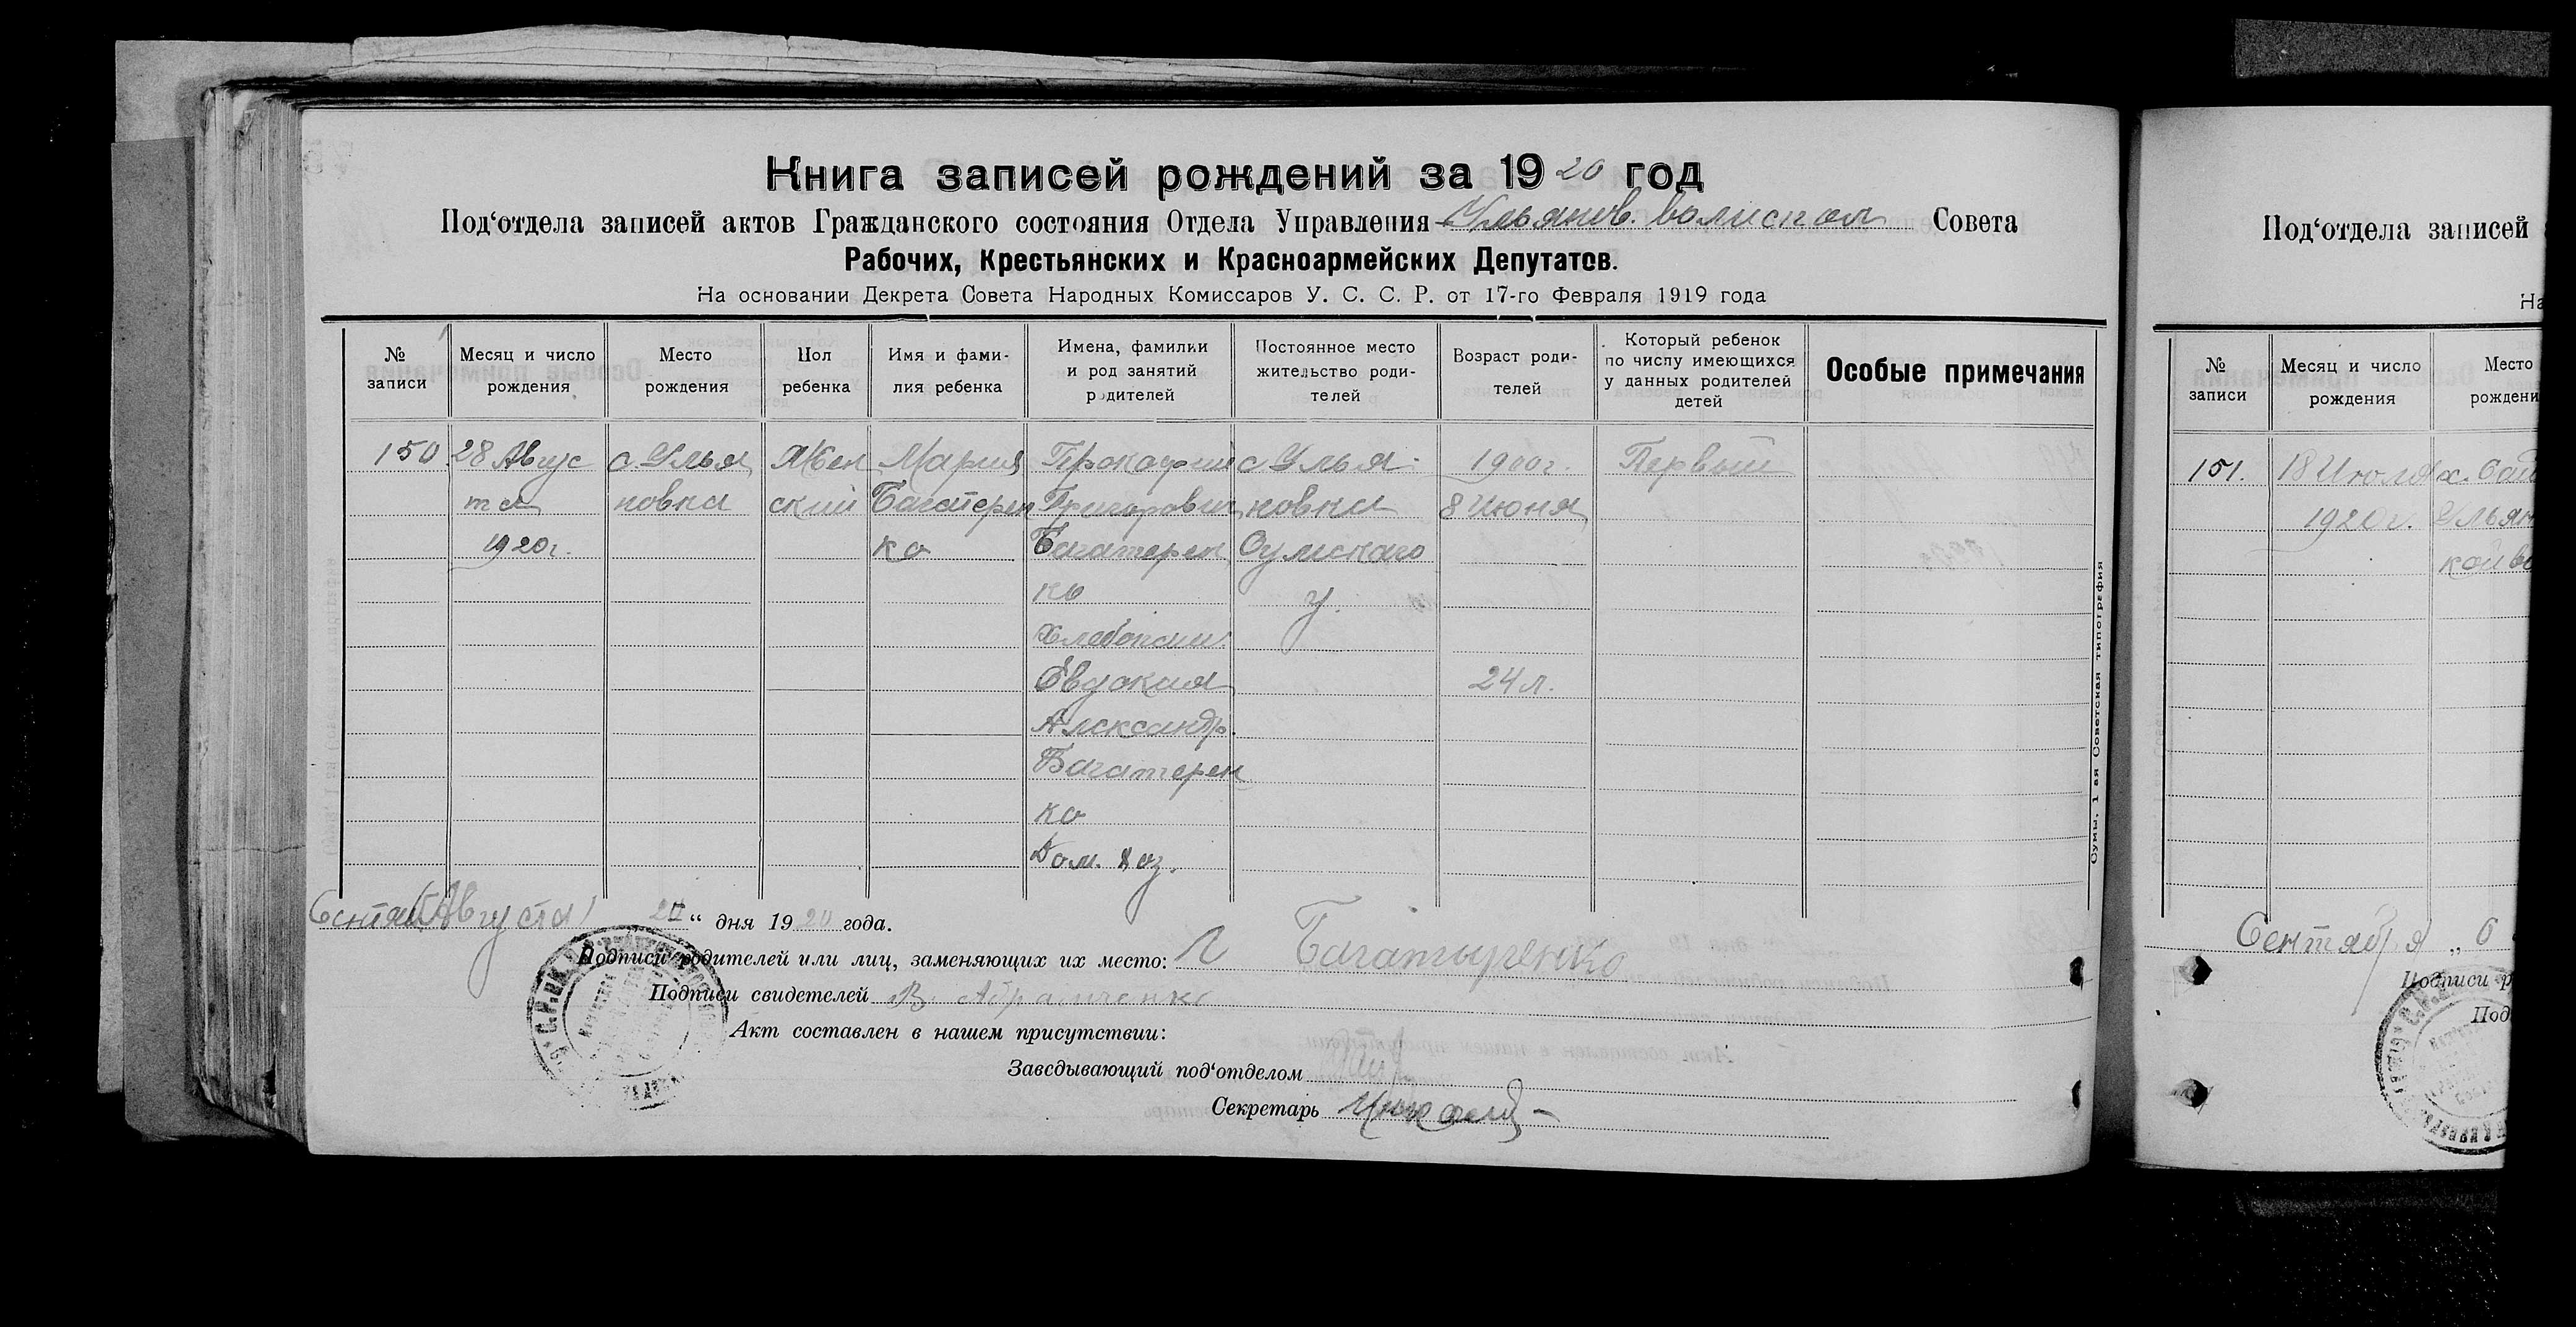 Книга записей рождений за 1920 год
Под‘отдела записей актов Гражданского состояния Отдела Управления Ульянов. волиспол Совета
Рабочих, Крестьянских и Красноармейских Депутатов.
На основании Декрета Совета Народных Комиссаров У. С. С. Р. от 17-го Февраля 1919 года
№ записи
Месяц и число рождения
Место рождения
Пол ребенка
Имя и фами-
лия ребенка
Имена, фамилии
и род занятий
родителей
Постоянное место
жительство роди-
телей
Возраст роди-
телей
Который ребенок
по числу имеющихся
у данных родителей
детей
Особые примечания
150
28 Авгус
та
1920г.
с. Улья
новка
Жен
ский
Мария
Багатерен
ко
Прокофий
Григорович
Багатерен
ко
Хлебопаш.
Евдокия
Александр.
Багатерен
ко
Дом. хоз.
с Улья-
новка
Сумскаго
у.
1900г.
8 Июня
24 л.
Первый
Сумы, 1 ая Советская типография
(Августа) 20 “ дня 1920 года.
Подписи родителей или лиц, заменяющих их место: Багатыренко
Подписи свидетелей В. Абраменко
Акт составлен в нашем присутствии:
Заведывающий под‘отделом
Секретарь
Под‘отдела записей
На
№ записи
Месяц и число рождения
Место
рождени
151.
18 Июля
1920 г.
х. Сад
Ульян
кой во
Сентября „ 6
Подписи р
Под